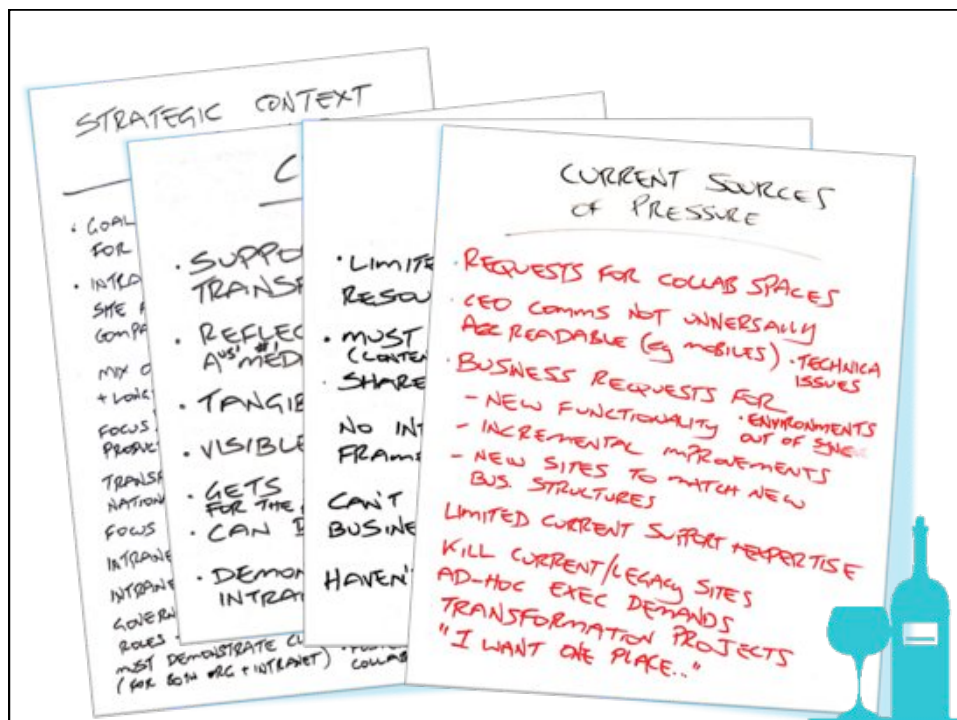 STRATEGIC CONTEXT
• GOAL
FOR
• INTRA
SITE
COMPA
MIX O
+ LONG
FOCUS
PRODUC
TRANSF
NATION
FOCUS
INTRANE
INTRANE
GOVERN
ROLES
MUST DEMONSTRATE
(FOR BOTH ORG + INTRANET)
COLLAB
C
• SUPPO
TRANSF
• REFLEC
AUS' #1
MED
• TANGIB
• VISIBLE
• GETS
FOR THE
• CAN
• DEMON
INTRA
• LIMITE
RESOU
• MUST
(CONTE
SHARE
NO INT
FRAME
CAN'T
BUSINE
HAVEN'
CURRENT SOURCES
OF PRESSURE
• REQUESTS FOR COLLAB SPACES
• CEO COMMS NOT UNNERSALLY
READABLE (eg MOBILES) • TECHNICA
ISSUES
• BUSINESS REQUESTS FOR
- NEW FUNCTIONALITY • ENVIRONMENTS
OUT OF SYNC
- INCREMENTAL IMPROVEMENTS
- NEW SITES TO MATCH NEW
BUS. STRUCTURES
LIMITED CURRENT SUPPORT + EXPERTISE
KILL CURRENT/LEGACY SITES
AD-HOC EXEC DEMANDS
TRANSFORMATION PROJECTS
"I WANT ONE PLACE.."